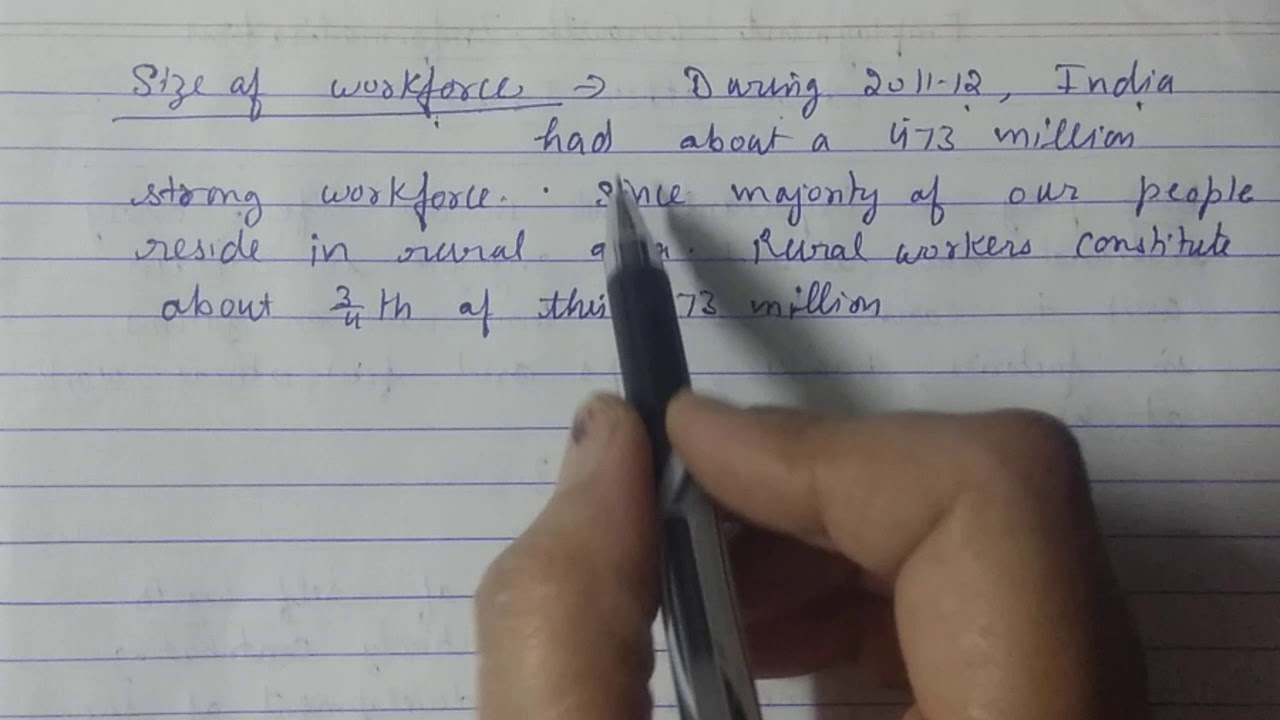 Size of workforce → During 2011-12, India
had about a 473 million
strong workforce. Since majority of our people
reside in rural Rural workers constitute
about 3/4 th of million